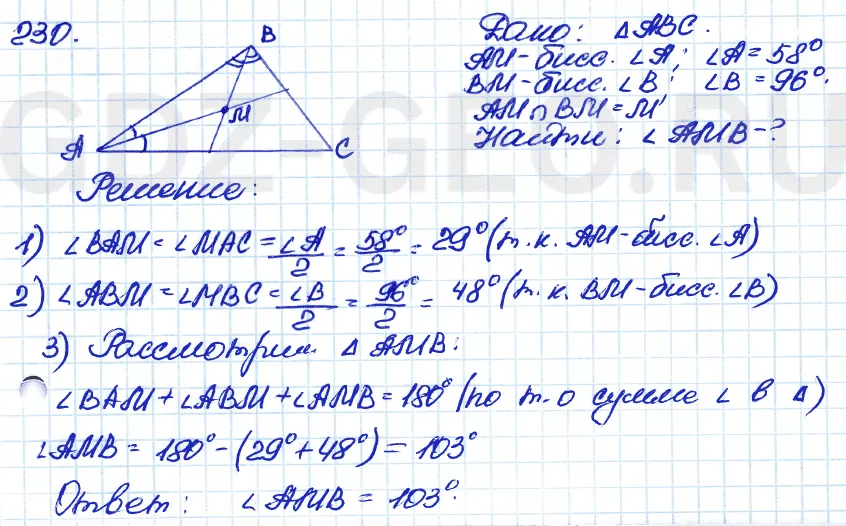 230.
B
M
A
C
Дано: △ABC.
AM-бисс. ∠A; ∠A=58°
BM-бисс. ∠B; ∠B=96°.
AM∩BM=M
Найти: ∠AMB-?
GDZ-GEO.RU
Решение:
1) ∠BAM=∠MAC=∠A/2=58°/2=29° (т.к. AM-бисс. ∠A)
2) ∠ABM=∠MBC=∠B/2=96°/2=48° (т.к. BM-бисс. ∠B)
3) Рассмотрим △AMB:
∠BAM+∠ABM+∠AMB=180° (по т. о сумме ∠ в △)
∠AMB=180°-(29°+48°)=103°
Ответ: ∠AMB=103°.